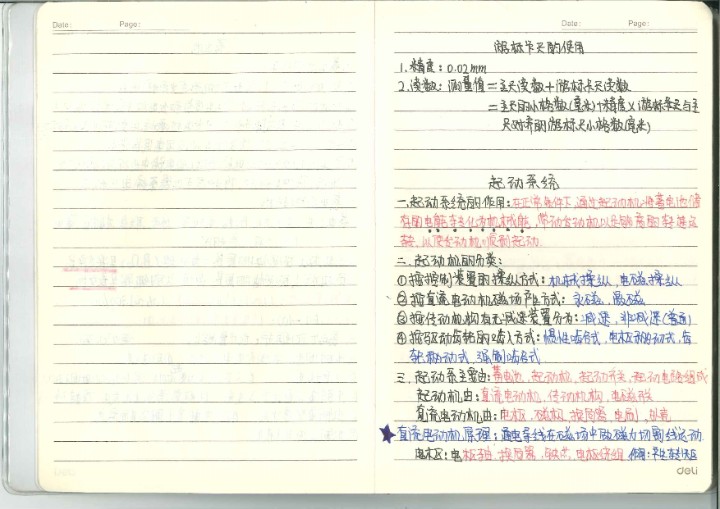 Date: Page:
Date: Page:
游标卡尺的使用
1.精度:0.02mm
2.读数:测量值=主尺读数+游标卡尺读数
=主尺的小格数(毫米)+精度×(游标卡尺与主
尺对齐的游标尺小格数(毫米)
起动系统
一.起动系统的作用:在正常条件下,通过起动机将蓄电池储
存的电能转化为机械能,带动发动机以足够高的转速运
转,以便发动机顺利起动.
二.起动机的分类:
①按控制装置的操纵方式:机械操纵,电磁操纵
②按直流电动机磁场产生方式:永磁,励磁
③按传动机构有无减速装置分为:减速,非减速(普通)
④按驱动齿轮的啮入方式:惯性啮合式,电枢移动式,齿
轮移动式,强制啮合式
三.起动系主要由:蓄电池,起动机,起动开关,起动电路组成
起动机由:直流电动机,传动机构,电磁
直流电动机由:电枢,磁极,换向器,电刷,外壳
★直流电动机原理:通电导线在磁场中受磁力切割线运动.
电枢:电枢轴,换向器,铁芯,电枢绕组
deli
deli